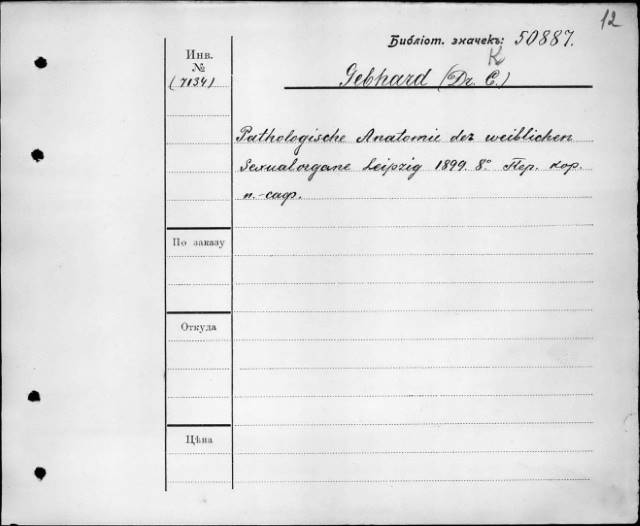 12
Библіот. значекъ: 50887.
К
Инв.
№
(7134)
Gebhard (Dr. C.)
Pathologische Anatomie der weiblichen
Sexualorgane Leipzig 1899. 8° Пер. кор.
п.-саф.
По заказу
Откуда
Цѣна